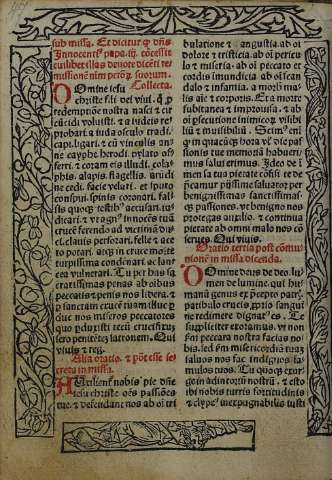 sub missa. Et dicitur qp dñs
Innocentiᵒ papa .iij. cōcessit
cuilibet illas deuote dicēti re
missionē oīm petōꝝ suorum.
Collecta.
Omine iesu
christe fili dei viui. q̄ p
redemptiōe nostra nasci et cir
cūcidi voluisti. et a iudeis re
probari. a iuda osculo tradi.
capi. ligari. et cū vinculis añ
ne cayphe herodi. pylato of
ferri. et coram eis illudi. cola
phis. alapis. flagellis. arūdi
ne cedi. facie velari. et sputo
conspui. spinis coronari. fal
sis quoqꝫ testibᵒ accusari. iu
dicari. et vt agnᵒ innocēs tuā
crucē ferendo ad victimā du
ci. clauis perforari. felle et ace
to potari. acqꝫ in cruce morte
turpissima condēnari. ac lan
cea vulnerari. Tu per has sa
cratissimas penas ab oibus
peccatis et penis nos libera. et
p sanctam crucē tuam illuc p
duc nos miseros peccatores
quo pduxisti tecū crucifixū
sero penitētez latronem. Qui
viuis et reg.
Alia oratio. et pōt esse se
creta in missa.
Xultient nobis pie dñe
iesu christe oēs passiões
tue. et defendant nos ab oī tri
bulatione et angustia. ab oī
dolore et tristicia. ab oī pericu
lo et miseria. ab oī peccato et
cordis imundicia. ab oī scan
dalo et infamia. a morbis ma
lis aīe et corporis. Et a morte
subitanea et improuisa. et ab
oī psecutione inimicoꝝ visibi
liū et inuisibiliū. Scimᵒ em̄
qꝫ in quacūqꝫ hora vl̓ die pas
sionis tue memoriā habueri
mus salui erimus. Ideo de īm
mensa tua pietate cōfisi te de
p̄camur piissime saluator per
benignissimas sanctissimas
qꝫ passiones. vt benigno nos
protegas auxilio. et continua
pietate ab omni malo nos cō
serues. Qui viuis.
Oratio tertia post cōmu
nionē in missa dicenda.
Omine deus de deo. lu
men de lumine. qui hu
manū genus ex precepto patri.
patibulo crucis p̄ptio sangui
ne redimere dignatᵒ es. Te
suppliciter exoramus. vt non
fm̄ peccata nostra facias no
bis. sed fm̄ misericordiā tuaꝫ
saluos nos fac indignos fa
mulos tuos. Tu quoqꝫ exur
ge in adiutoriū nostrū. et esto
ibi nobis turris fortitudinis
et clypeᵒ inexpugnabilis iusti